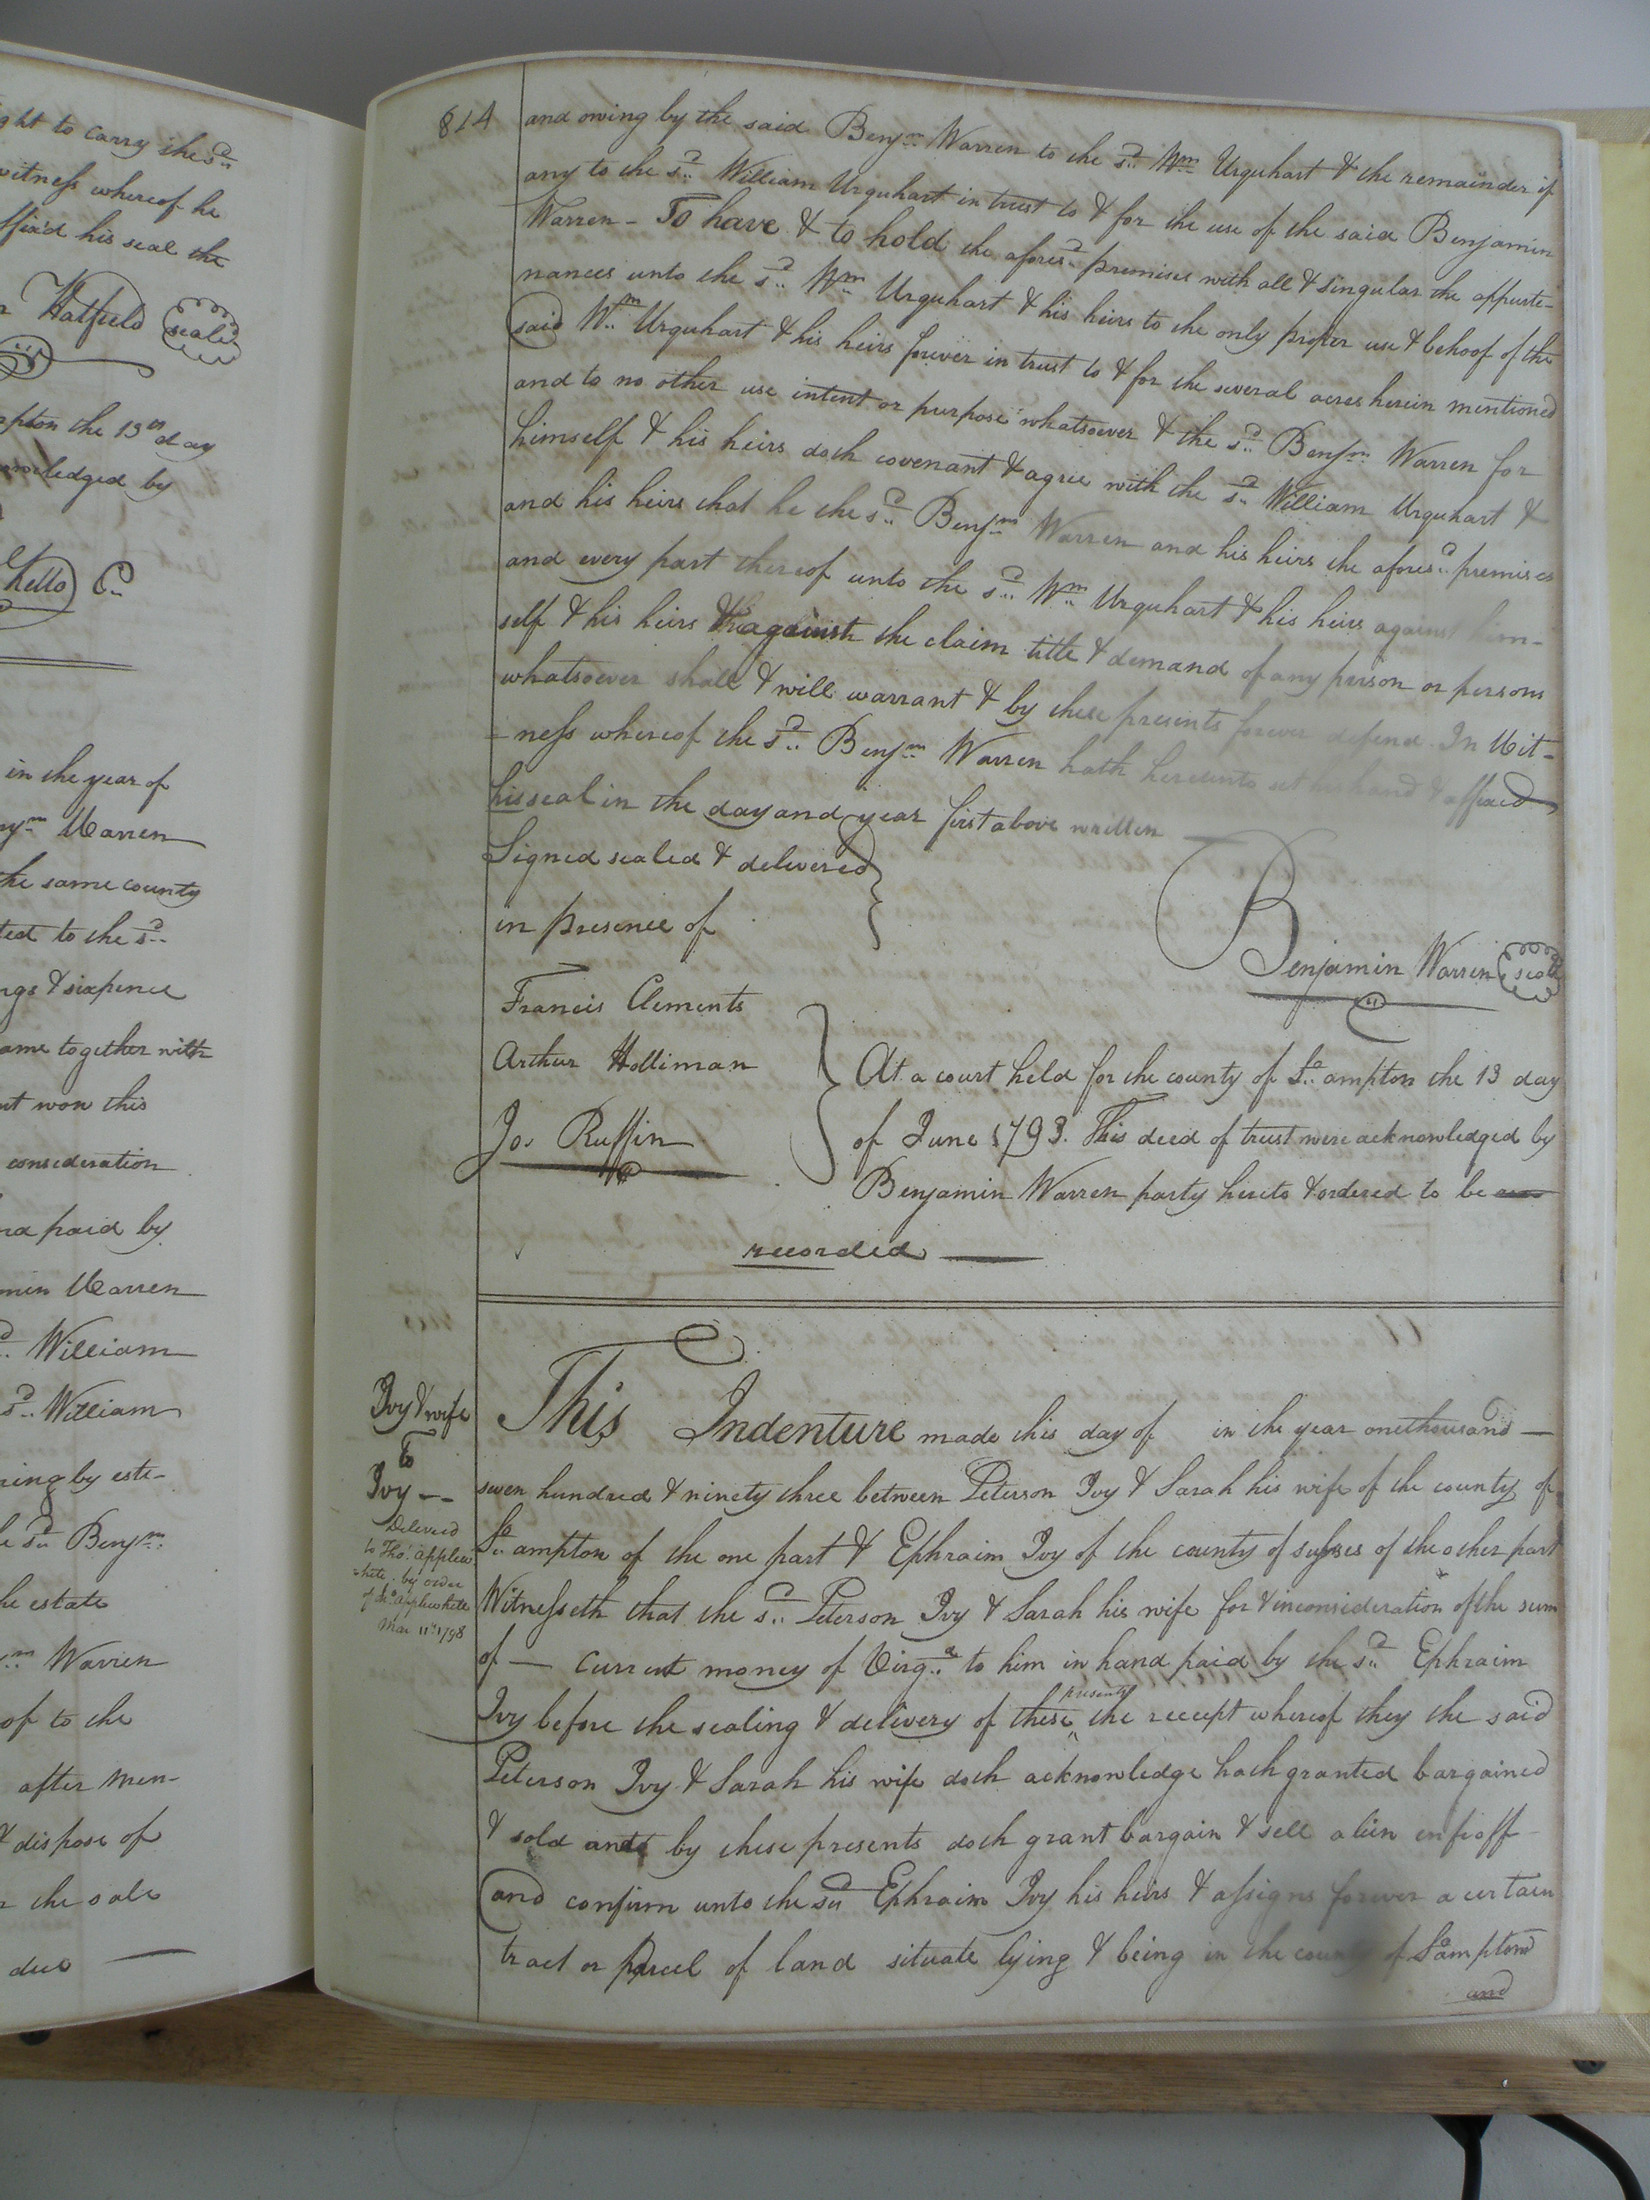 ght to carry the sd
witness whereof he
ffixd his seal the
Hatfield seal
pton the 13th day
nowledged by
hello C
in the year of
njm Warren
he same county
ted to the sd
ngs & sixpence
ame together with
ut won this
consideration
nd paid by
min Warren
William
sd William
ning by este-
sd Benjm
he estate
m Warren
of to the
after men-
& dispose of
the sale
due
814
and owing by the said Benjm Warren to the sd Wm Urquhart & the remainder if
any to the sd William Urquhart in trust to & for the use of the said Benjamin
Warren - To have & to hold the aforesd premises with all & singular the appurte-
nances unto the sd Wm Urquhart & his heirs to the only proper use & behoof of the
said Wm Urquhart & his heirs forever in trust to & for the several acres herein mentioned
and to no other use intent or purpose whatsoever & the sd Benjm Warren for
himself & his heirs doth covenant & agree with the sd William Urquhart &
and his heirs that he the sd Benjm Warren and his heirs the aforesd premises
and every part thereof unto the sd Wm Urquhart & his heirs against him-
self & his heirs & against the claim title & demand of any person or persons
whatsoever shall & will warrant & by these presents forever defend In Wit-
-ness whereof the sd Benjm Warren hath hereunto set his hand & affixed
his seal in the day and year first above written
Signed sealed & delivered
in presence of
Benjamin Warren seal
Francis Clements
Arthur Holliman
Jos Ruffin
At a court held for the county of So ampton the 13 day
of June 1793. This deed of trust were acknowledged by
Benjamin Warren party hereto & ordered to be
recorded
Ivy & wife
to
Ivy --
Delivered
to Tho. applew
-hite by order
of Ho applewhite
Mar 11th 1798
This Indenture made this day of in the year one thousand -
seven hundred & ninety three between Peterson Ivy & Sarah his wife of the county of
So ampton of the one part & Ephraim Ivy of the county of sussex of the other part
Witnesseth that the sd Peterson Ivy & Sarah his wife for & in consideration of the sum
of - current money of Virga to him in hand paid by the sd Ephraim
Ivy before the sealing & delivery of these presents the receipt whereof they the said
Peterson Ivy & Sarah his wife doth acknowledge hath granted bargained
& sold and by these presents doth grant bargain & sell alien enfeoff
and confirm unto the sd Ephraim Ivy his heirs & assigns forever a certain
tract or parcel of land situate lying & being in the county of Soampton
and